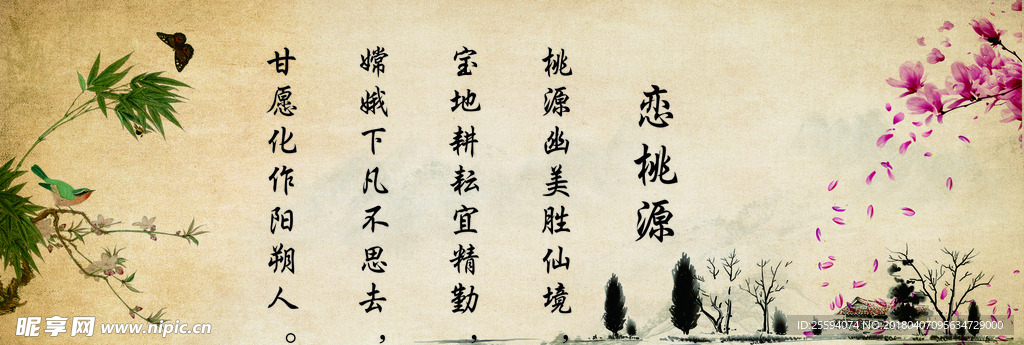 恋桃源
桃源幽美胜仙境，
宝地耕耘宜精勤，
嫦娥下凡不思去，
甘愿化作阳朔人。
昵享网 www.nipic.cn
ID:25594074 NO:20180407095634729000